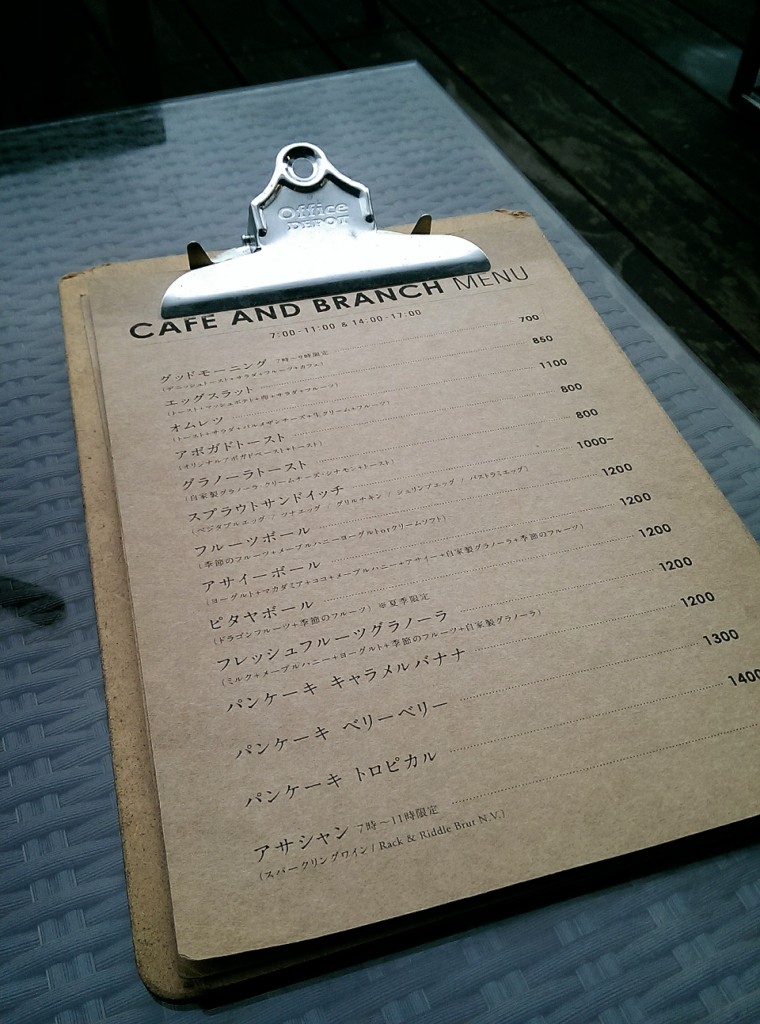 Office
DEPOT
CAFE AND BRANCH MENU
7:00-11:00 & 14:00-17:00
グッドモーニング 7時~9時限定 700
(デニッシュトースト+サラダ+フルーツ+カフェ)
エッグスラット 850
(トースト+マッシュポテト+卵+サラダ+フルーツ)
オムレツ 1100
(トースト+サラダ+パルメザンチーズ+生クリーム+フルーツ)
アボガドトースト 800
(オリジナルアボガドペースト+トースト)
グラノーラトースト 800
(自家製グラノーラ+クリームチーズ+シナモン+トースト)
スプラウトサンドイッチ 1000~
(ベジタブルエッグ / ツナエッグ / グリルチキン / シュリンプエッグ / パストラミエッグ)
フルーツボール 1200
(季節のフルーツ+メープルハニーヨーグルトorクリームソフト)
アサイーボール 1200
(ヨーグルト+マカダミア+ココ+メープルハニー+アサイー+自家製グラノーラ+季節のフルーツ)
ピタヤボール 1200
(ドラゴンフルーツ+季節のフルーツ) ※夏季限定
フレッシュフルーツグラノーラ 1200
(ミルク+メープルハニー+ヨーグルト+季節のフルーツ+自家製グラノーラ)
パンケーキ キャラメルバナナ 1200
パンケーキ ベリーベリー 1300
パンケーキ トロピカル 1400
アサシャン 7時~11時限定
(スパークリングワイン / Rack & Riddle Brut N.V.)